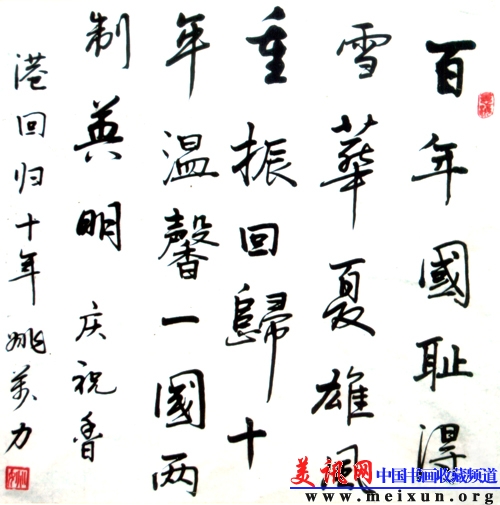 百年國耻得
雪華夏雄風
重振回歸十
年温馨一國两
制英明 庆祝香
港回归十年 姚万力
美讯网 中国书画收藏频道
www.meixun.org